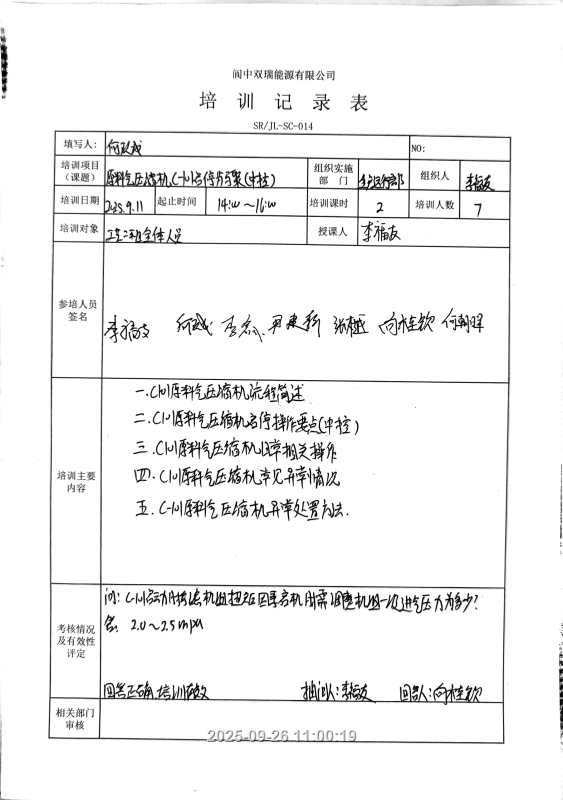 阆中双瑞能源有限公司
培训记录表
SR/JL-SC-014
填写人: 何跃成 NO:
培训项目（课题） 原料气压缩机C-101启停步骤(中控) 组织实施部门 生产运行部 组织人 李福友
培训日期 2025.9.11 起止时间 14:00～16:00 培训课时 2 培训人数 7
培训对象 工艺二班全体人员 授课人 李福友
参培人员签名
李福友 尹建新 何朝晖
培训主要内容
一.C101原料气压缩机流程简述
二.C101原料气压缩机启停操作要点(中控)
三.C101原料气压缩机日常相关操作
四.C101原料气压缩机常见异常情况
五.C-101原料气压缩机异常处置方法.
考核情况及有效性评定
问: C-101启动时 机组 时需调整机组一级进气压力为多少?
答. 2.0～2.5mpa
回答正确,培训有效 抽问人:李福友 回答人:向桂钦
相关部门审核
2025-09-26 11:00:19